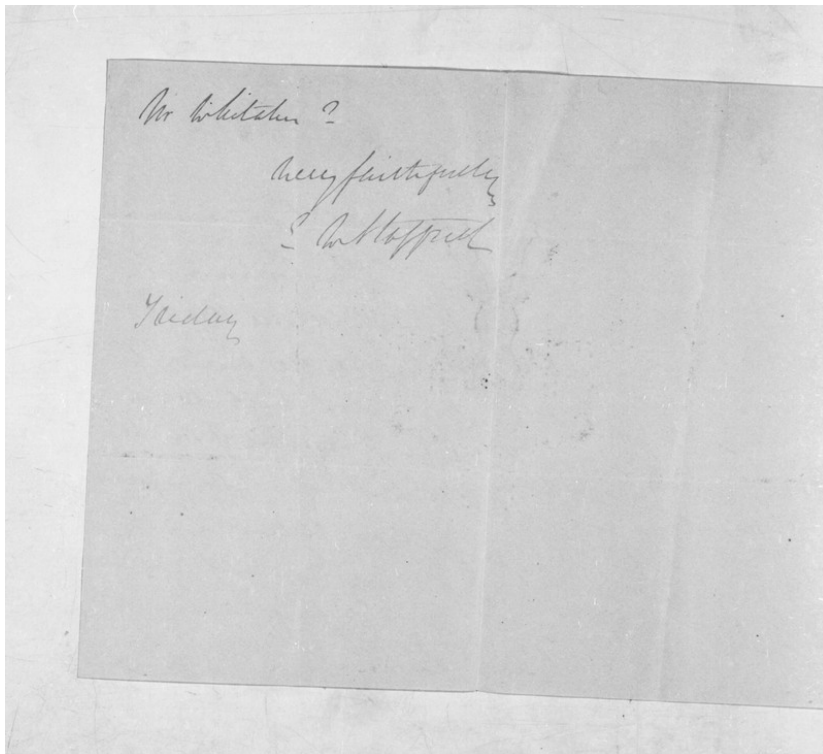 Mr Whitaker ?
very faithfully
Friday